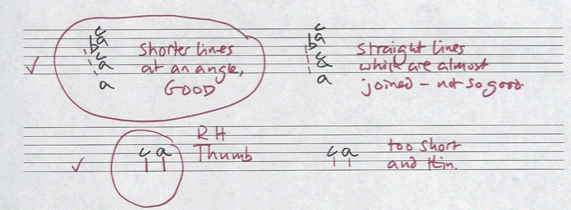 c
a
b
c
a
a
shorter lines
at an angle,
GOOD
c
a
b
c
a
a
straight lines
which are almost
joined - not so good
c a
RH
Thumb
c a
too short
and thin.